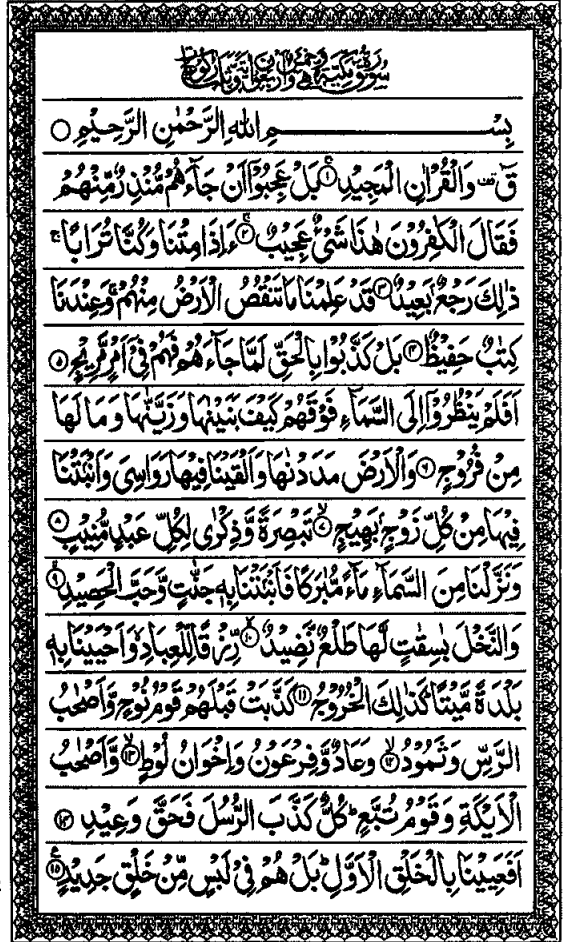 سُوْرَةُ قٓ مَكِّيَّةٌ وَّهِيَ خَمْسٌ وَّاَرْبَعُوْنَ اٰيَةً وَّثَلٰثُ رُكُوْعَاتٍ
بِسْمِ اللهِ الرَّحْمٰنِ الرَّحِيْمِ ○
قٓ ۚ وَالْقُرْاٰنِ الْمَجِيْدِ ۝۱ بَلْ عَجِبُوْۤا اَنْ جَآءَهُمْ مُّنْذِرٌ مِّنْهُمْ
فَقَالَ الْكٰفِرُوْنَ هٰذَا شَیْءٌ عَجِيْبٌ ۝۲ ءَاِذَا مِتْنَا وَكُنَّا تُرَابًا ۚ
ذٰلِكَ رَجْعٌۢ بَعِيْدٌ ۝۳ قَدْ عَلِمْنَا مَا تَنْقُصُ الْاَرْضُ مِنْهُمْ ۚ وَعِنْدَنَا
كِتٰبٌ حَفِيْظٌ ۝۴ بَلْ كَذَّبُوْا بِالْحَقِّ لَمَّا جَآءَهُمْ فَهُمْ فِیْۤ اَمْرٍ مَّرِيْجٍ ۝۵
اَفَلَمْ يَنْظُرُوْۤا اِلَی السَّمَآءِ فَوْقَهُمْ كَيْفَ بَنَيْنٰهَا وَزَيَّنّٰهَا وَمَا لَهَا
مِنْ فُرُوْجٍ ۝۶ وَالْاَرْضَ مَدَدْنٰهَا وَاَلْقَيْنَا فِيْهَا رَوَاسِیَ وَاَنْۢبَتْنَا
فِيْهَا مِنْ كُلِّ زَوْجٍۭ بَهِيْجٍ ۝۷ تَبْصِرَةً وَّذِكْرٰی لِكُلِّ عَبْدٍ مُّنِيْبٍ ۝۸
وَنَزَّلْنَا مِنَ السَّمَآءِ مَآءً مُّبٰرَكًا فَاَنْۢبَتْنَا بِهٖ جَنّٰتٍ وَّحَبَّ الْحَصِيْدِ ۝۹
وَالنَّخْلَ بٰسِقٰتٍ لَّهَا طَلْعٌ نَّضِيْدٌ ۝۱۰ رِّزْقًا لِّلْعِبَادِ ۙ وَاَحْيَيْنَا بِهٖ
بَلْدَةً مَّيْتًا ؕ كَذٰلِكَ الْخُرُوْجُ ۝۱۱ كَذَّبَتْ قَبْلَهُمْ قَوْمُ نُوْحٍ وَّاَصْحٰبُ
الرَّسِّ وَثَمُوْدُ ۝۱۲ وَعَادٌ وَّفِرْعَوْنُ وَاِخْوَانُ لُوْطٍ ۝۱۳ وَّاَصْحٰبُ
الْاَيْكَةِ وَقَوْمُ تُبَّعٍ ؕ كُلٌّ كَذَّبَ الرُّسُلَ فَحَقَّ وَعِيْدِ ۝۱۴
اَفَعَيِيْنَا بِالْخَلْقِ الْاَوَّلِ ؕ بَلْ هُمْ فِیْ لَبْسٍ مِّنْ خَلْقٍ جَدِيْدٍ ۝۱۵